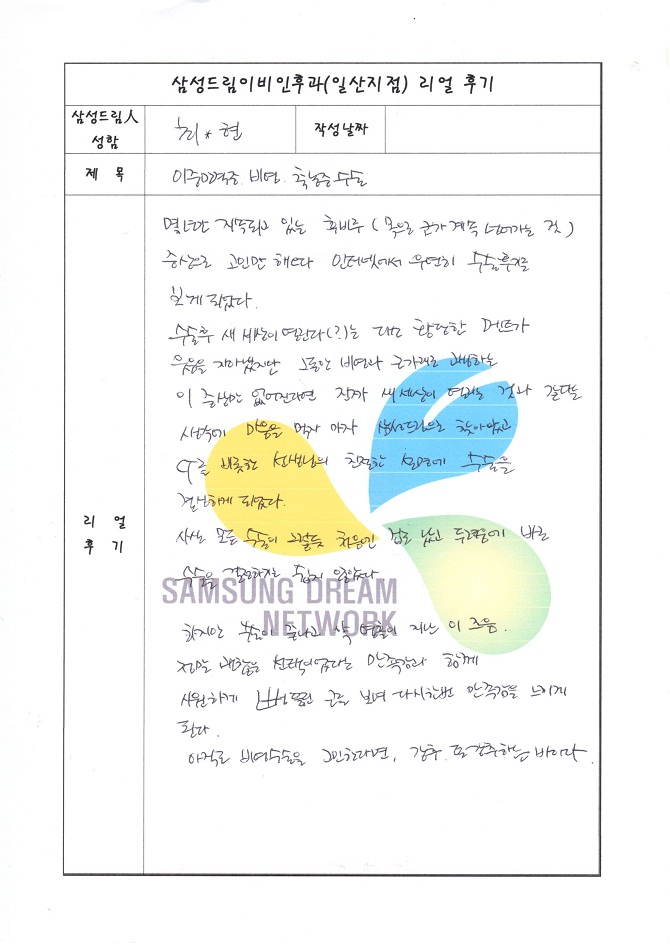 삼성드림이비인후과(일산지점) 리얼 후기
삼성드림人 성함
최*현
작성날짜
제 목
비염. 축농증 수술
리얼 후기
몇년간 지독하게 있는 후비루 (목으로 콧가 계속 넘어가는 것)
증상으로 고민만 해오다 인터넷에서 우연히 수술후기를
보게 되었다.
수술후 새 세상이 열린다(?)는 다소 황당한 멘트가
웃음을 자아냈지만 그동안 비염과 코가래로 고생하는
이 증상만 없어진다면 진짜 새 세상이 열리는 것과 같다는
생각에 마음을 먹자 마자 삼성드림으로 찾아왔고
비롯한 선생님의 친절한 설명에 수술을
결심하게 되었다.
사실 모든 수술이 그렇듯 처음엔 겁도 났고 두려움에 바로
수술을 결정하지는 않았다
SAMSUNG DREAM
NETWORK
하지만 수술이 끝나고 약 열흘이 지난 이 즈음.
정말 괜찮은 선택이었다는 만족감과 함께
시원하게 뻥 뚫린 코를 보며 다시한번 만족감을 느끼게
된다.
아직도 비염수술을 고민한다면, 강추 또 강추하는 바이다.